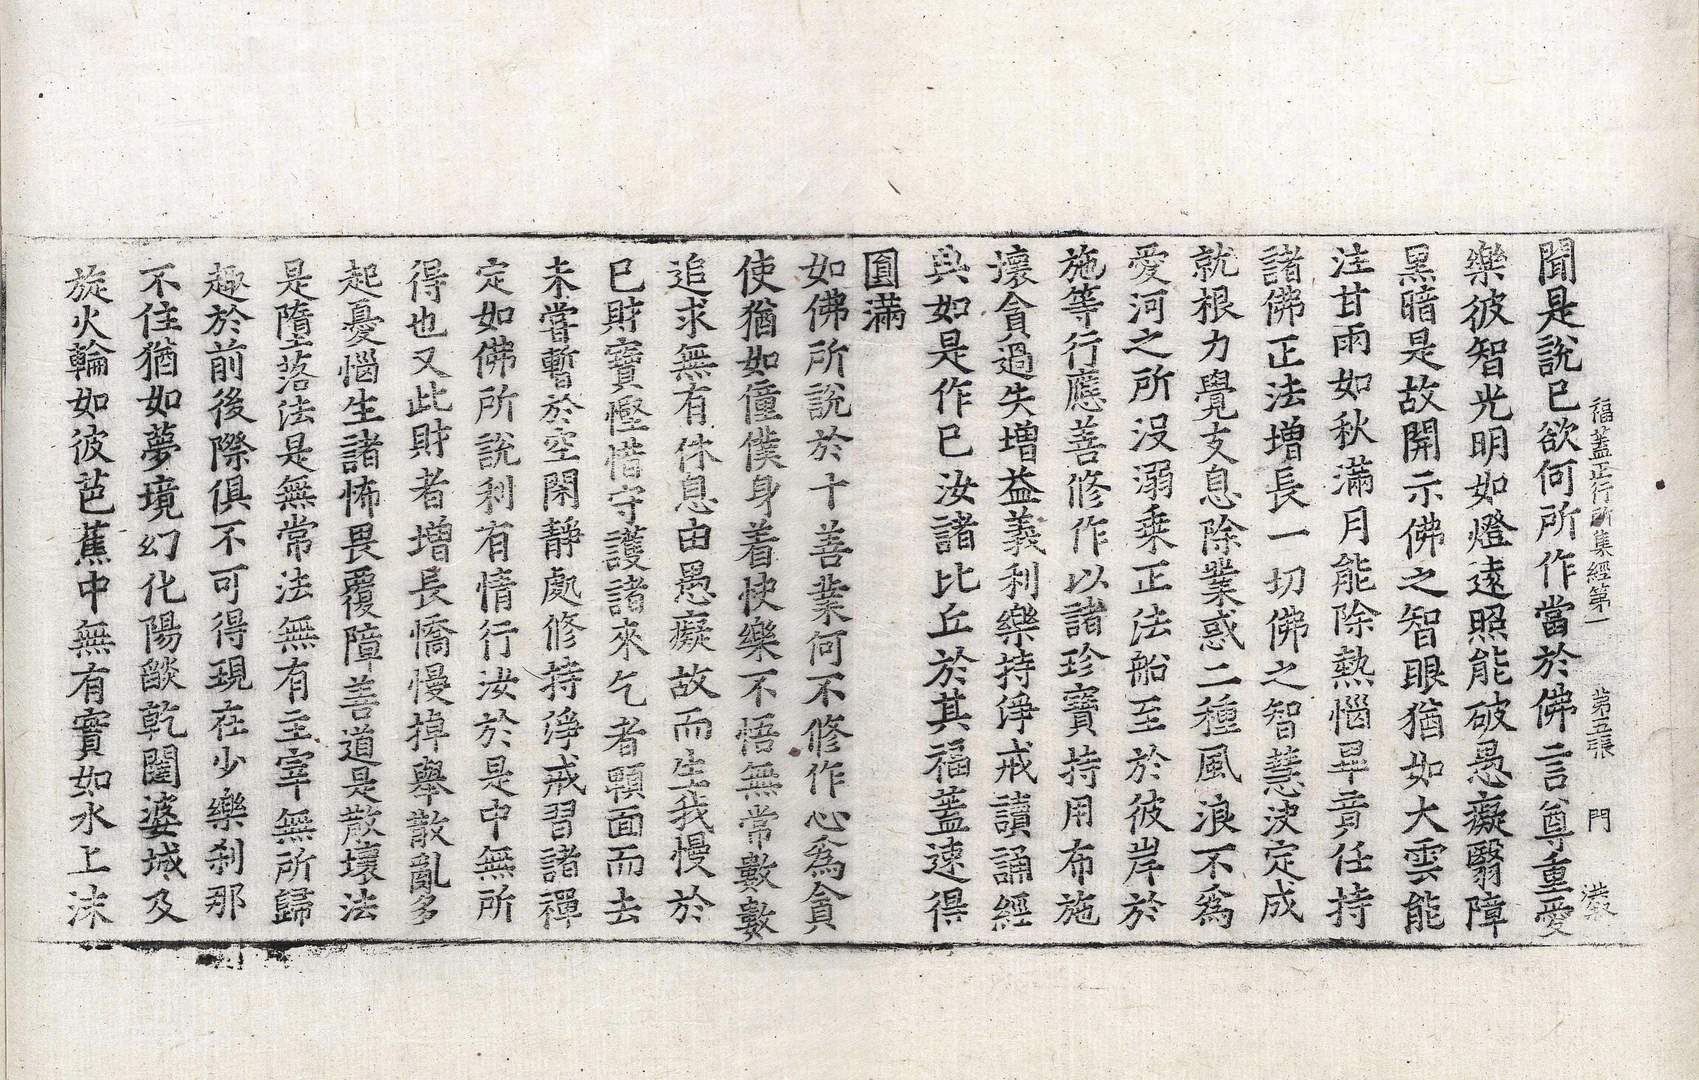 福蓋正行所集經第一　第五張　門
聞是說已欲何所作當於佛言尊重愛
樂彼智光明如燈遠照能破愚癡翳障
黑暗是故開示佛之智眼猶如大雲能
注甘雨如秋滿月能除熱惱畢竟任持
諸佛正法增長一切佛之智慧決定成
就根力覺支息除業惑二種風浪不為
愛河之所沒溺乘正法船至於彼岸於
施等行應善修作以諸珍寶持用布施
壞貪過失增益義利樂持淨戒讀誦經
典如是作已汝諸比丘於其福蓋速得
圓滿
如佛所說於十善業何不修作心為貪
使猶如僮僕身着快樂不悟無常數數
追求無有休息由愚癡故而生我慢於
已財寶慳惜守護諸來乞者顰面而去
未嘗暫於空閑靜處修持淨戒習諸禪
定如佛所說利有情行汝於是中無所
得也又此財者增長憍慢掉舉散亂多
起憂惱生諸怖畏覆障善道是散壞法
是墮落法是無常法無有主宰無所歸
趣於前後際俱不可得現在少樂剎那
不住猶如夢境幻化陽燄乾闥婆城及
旋火輪如彼芭蕉中無有實如水上沫